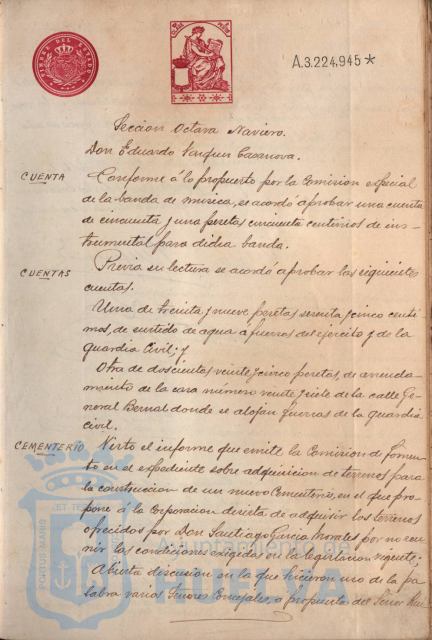 TIMBRE DEL ESTADO
A.3.224,945*
Seccion Octava Naviero.
Don Eduardo Vazquez Casanova.
CUENTA
Conforme á lo propuesto por la Comision especial
de la banda de música, se acordó aprobar una cuenta
de cincuenta y una pesetas cincuenta centimos de ins-
trumental para dicha banda.
CUENTAS
Previa su lectura se acordó aprobar las siguientes
cuentas.
Una de treinta y nueve pesetas setenta y cinco centi-
mos, de surtido de agua á fuerzas del ejercito y de la
guardia Civil; y
Otra de doscientas veinte y cinco pesetas, de arrenda-
miento de la casa número veinte y siete de la calle Ge-
neral Bernal donde se alojan fuerzas de la guardia
civil.
CEMENTERIO
Visto el informe que emite la Comision de fomen-
to en el expediente sobre adquisicion de terrenos para
la construccion de un nuevo Cementerio, en el que pro-
pone á la Corporacion desista de adquirir los terrenos
ofrecidos por Don Santiago Garcia Morales por no reu-
nir las condiciones exigidas en la legislacion vigente;
Abierta discusion en la que hicieron uso de la pa-
labra varios Señores Concejales, á propuesta del Señor
PORTUS MARIS
ET TE
Ayuntamiento de
HUELVA